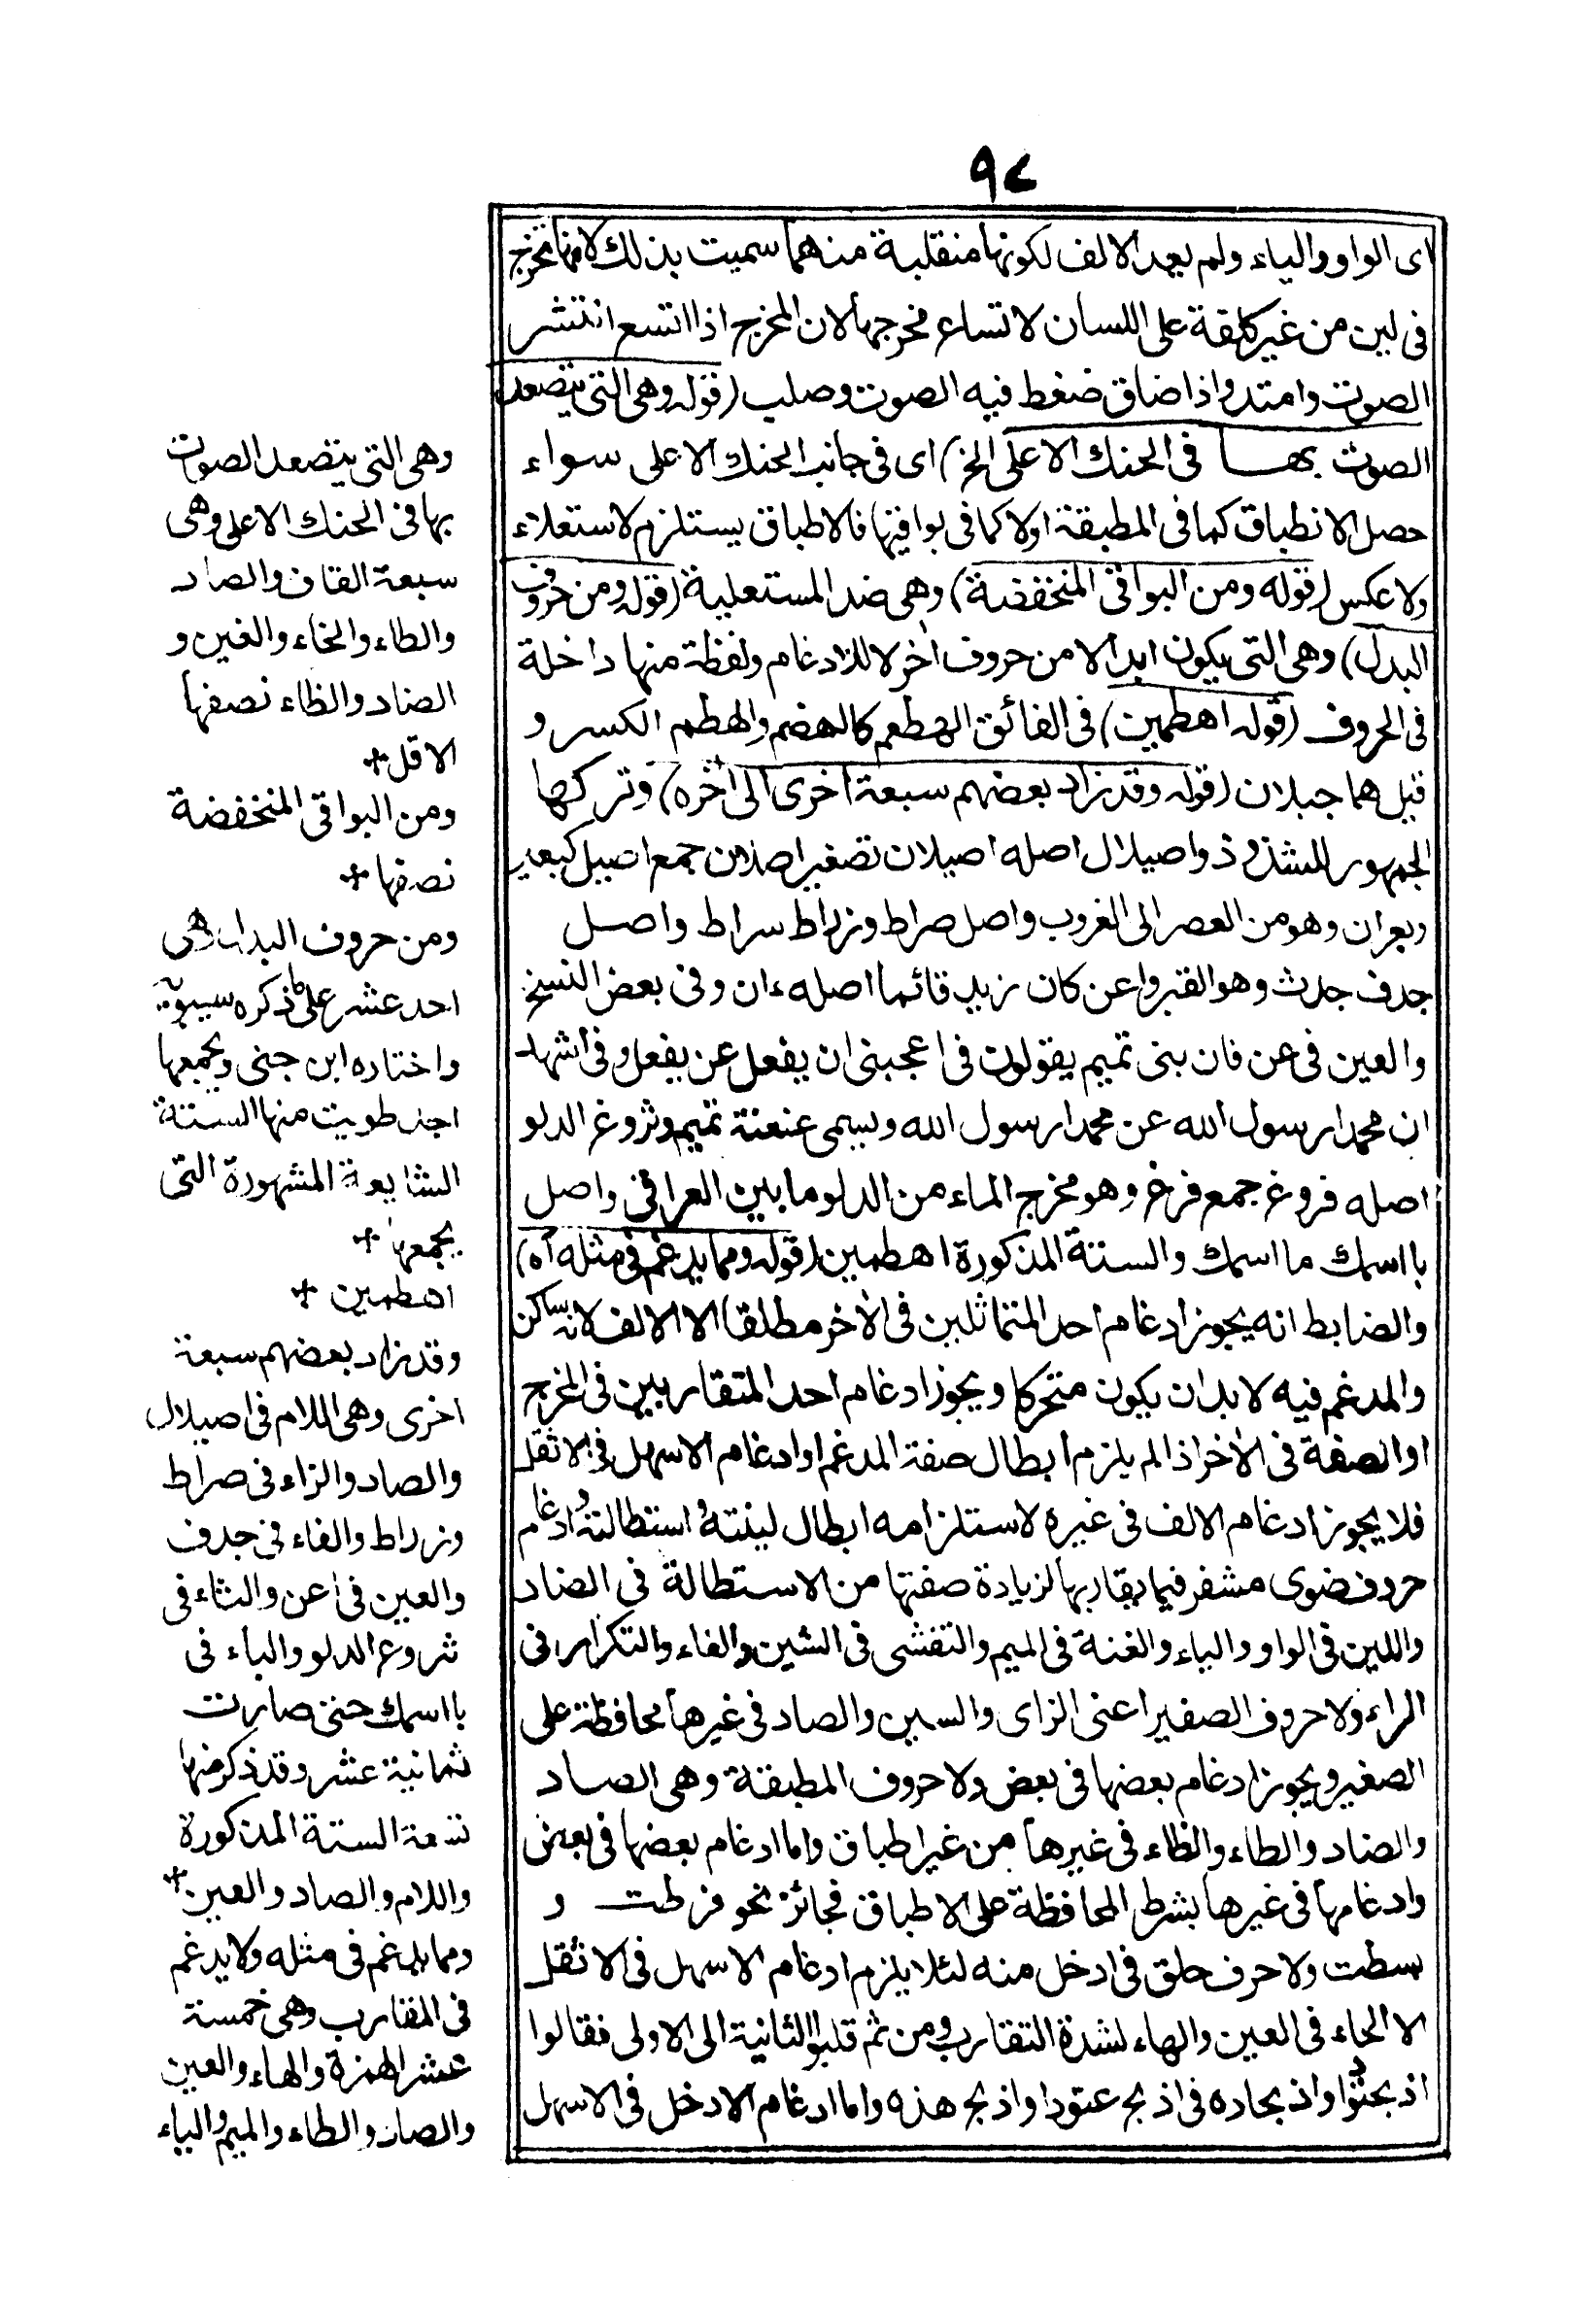 ٩٧
اى الواو والياء ولم يعد الالف لكونها منقلبة منهما سميت بذلك لانها تخرج
فى لين من غير كلفة على اللسان لاتساع مخرجها لان المخرج اذا اتسع انتشر
الصوت وامتد واذا ضاق ضغط فيه الصوت وصلب (قوله وهى التى يتصعد
الصوت بها فى الحنك الاعلى الخ) اى فى جانب الحنك الاعلى سواء
حصل الانطباق كما فى المطبقة اولا كما فى بواقيها فالاطباق يستلزم لاستعلاء
ولا عكس (قوله ومن البواقى المنخفضة) وهى ضد المستعلية (قوله ومن حروف
البدل) وهى التى يكون ابدالا من حروف اخر لا للادغام ولفظة منها داخلة
فى الحروف (قوله اهطمين) فى الفائق الهطم كالهضم والهطم الكسر و
قيل هما جبلان (قوله وقد زاد بعضهم سبعة اخرى الى اخره) وتركها
الجمهور للشذوذ واصيلال اصله اصيلان تصغير اصلان جمع اصيل كبعير
وبعران وهو من العصر الى الغروب واصل صراط وزراط سراط واصل
جدف جدث وهو القبر واعن كان زيد قائما اصله ءان وفى بعض النسخ
والعين فى عن فان بنى تميم يقولون فى اعجبنى ان يفعل عن يفعل وفى اشهد
ان محمدا رسول الله عن محمدا رسول الله ويسمى عنعنة تميم وثروغ الدلو
اصله فروغ جمع فرغ وهو مخرج الماء من الدلو ما بين العراقى واصل
با اسمك ما اسمك والستة المذكورة اهطمين (قوله ومما يدغم فى مثله اه)
والضابط انه يجوز ادغام احد المتماثلين فى الآخر مطلقا الا الالف لانه ساكن
والمدغم فيه لا بد ان يكون متحركا ويجوز ادغام احد المتقاربين فى المخرج
او الصفة فى الآخر اذا لم يلزم ابطال صفة المدغم او ادغام الاسهل فى الاثقل
فلا يجوز ادغام الالف فى غيره لاستلزامه ابطال لينته واستطالته ولا ادغام
حروف ضوى مشفر فيما يقاربها لزيادة صفتها من الاستطالة فى الضاد
واللين فى الواو والياء والغنة فى الميم والتفشى فى الشين والفاء والتكرار فى
الراء ولا حروف الصفير اعنى الزاى والسين والصاد فى غيرها محافظة على
الصفير ويجوز ادغام بعضها فى بعض ولا حروف المطبقة وهى الصاد
والضاد والطاء والظاء فى غيرها من غير اطباق واما ادغام بعضها فى بعض
وادغامها فى غيرها بشرط المحافظة على الاطباق فجائز نحو فرطت و
بسطت ولا حرف حلق فى ادخل منه لئلا يلزم ادغام الاسهل فى الاثقل
الا الحاء فى العين والهاء لشدة التقارب ومن ثم قلبوا الثانية الى الاولى فقالوا
اذبحتودا واذبحاده فى اذبح عتودا واذبح هذه واما ادغام الادخل فى الاسهل
وهى التى يتصعد الصوت
بها فى الحنك الاعلى وهى
سبعة القاف والصاد
والطاء والخاء والغين و
الضاد والظاء نصفها
الاقل +
ومن البواقى المنخفضة
نصفها +
ومن حروف البدل وهى
احد عشر على ما ذكره سيبويه
واختاره ابن جنى ويجمعها
اجد طويت منها الستة
الشايعة المشهورة التى
يجمعها +
اهطمين +
وقد زاد بعضهم سبعة
اخرى وهى اللام فى اصيلال
والصاد والزاء فى صراط
وزراط والفاء فى جدف
والعين فى اعن والثاء فى
ثروغ الدلو والباء فى
با اسمك حتى صارت
ثمانية عشر وقد ذكر منها
تسعة الستة المذكورة
واللام والصاد والعين +
ومما يدغم فى مثله ولا يدغم
فى المقارب وهى خمسة
عشر الهمزة والهاء والعين
والصاد والطاء والميم والياء